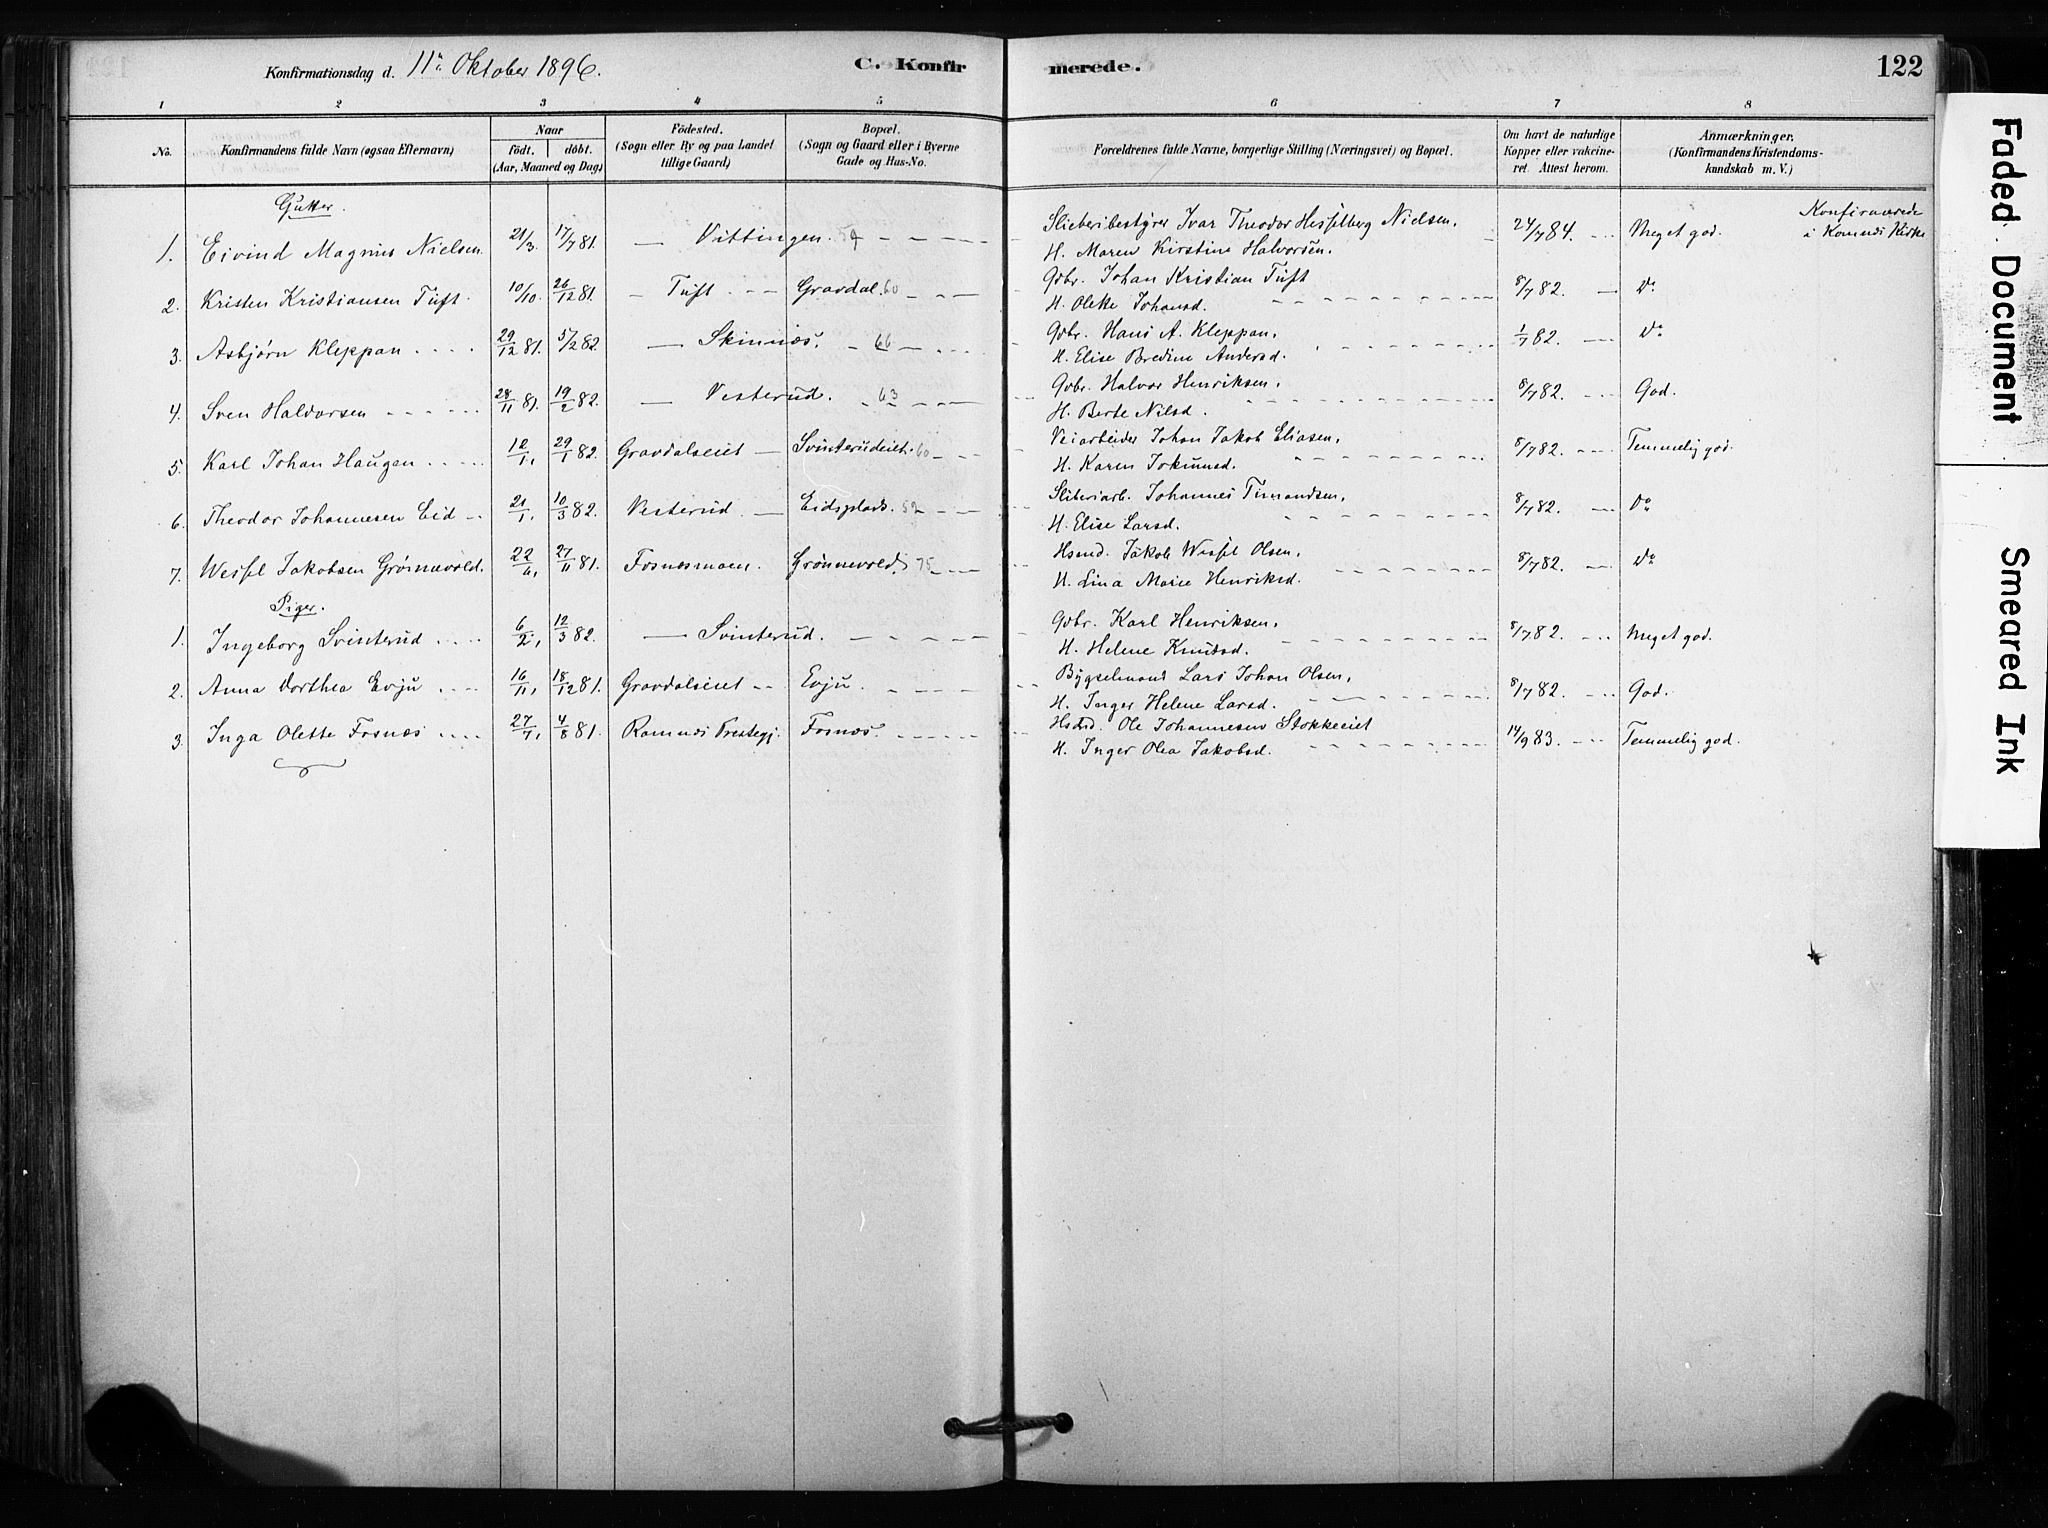 Konfirmationsdag d. 11te Oktober 1896. C. Konfirmerede. 122
1 2 3 4 5 6 7 8
No. Konfirmandens fulde Navn (ogsaa Efternavn) Naar født. døbt. (Aar, Maaned og Dag) Fødested. (Sogn eller By og paa Landet tillige Gaard) Bopæl. (Sogn og Gaard eller i Byerne Gade og Hus-No. Forældrenes fulde Navne, borgerlige Stilling (Næringsvei) og Bopæl. Om havt de naturlige Kopper eller vakcineret. Attest herom. Anmærkninger. (Konfirmandens Kristendomskundskab m. V.)
Gutter.
1. Eivind Magnus Nielsen. 21/3. 17/7 81. — Vittingen. 59 Sliberibestyrer Ivar Theodor Hesselberg Nielsen, H. Maren Kirstine Halvorsen. 24/7 84. Meget god. Konfirmerede i Komnes Kirke
2. Kristen Kristiansen Tuft. 10/10. 26/12 81. — Tuft Gravdal. 60 Gbr. Johan Kristian Tuft H. Olette Johansd. 8/7 82. Do
3. Asbjørn Kleppan 29/12 81. 5/2 82. — Skinnes. 66 Gbr. Hans A. Kleppan, H. Elise Bredine Andersd. 1/7 82. Do
4. Sven Halvorsen 28/11 81. 19/2 82. — Vesterud. 63 Gbr. Halvor Henriksen, H. Berte Nilsd. 8/7 82. God.
5. Karl Johan Haugen 12/1, 29/1 82. Gravdalseiet — Svinterudeiet. 60 Veiarbeider Johan Jakob Eliasen, H. Karen Jokumsd. 8/7 82. Temmelig god.
6. Theodor Johannesen Eid 21/1, 10/3 82. Vesterud — Eidsplads. 52 Sliberiarb. Johannes Simondsen, H. Elise Larsd. 8/7 82. Do
7. Wessel Jakobsen Grønnevold. 22/6, 27/11 81. Fosnesmoen. Grønnevold. 75 Hsmd. Jakob Wessel Olsen, H. Lina Marie Henriksd. 8/7 82. Do
Piger.
1. Ingeborg Svinterud 6/2, 12/3 82. — Svinterud. Gbr. Karl Henriksen, H. Helene Knutsd. 8/7 82. Meget god.
2. Anna Dorthea Evju 16/11, 18/12 81. Gravdalseiet Evju. Bygselmand Lars Johan Olsen, H. Inger Helene Larsd. 8/7 82. God.
3. Inga Olette Fosnæs 27/7, 4/8 81. Ramnes Prestegj. Fosnæs. Hsmd. Ole Johannesen Stokkeeiet H. Inger Olea Jakobsd. 14/9 83. Temmelig god.
Faded Document
Smeared Ink